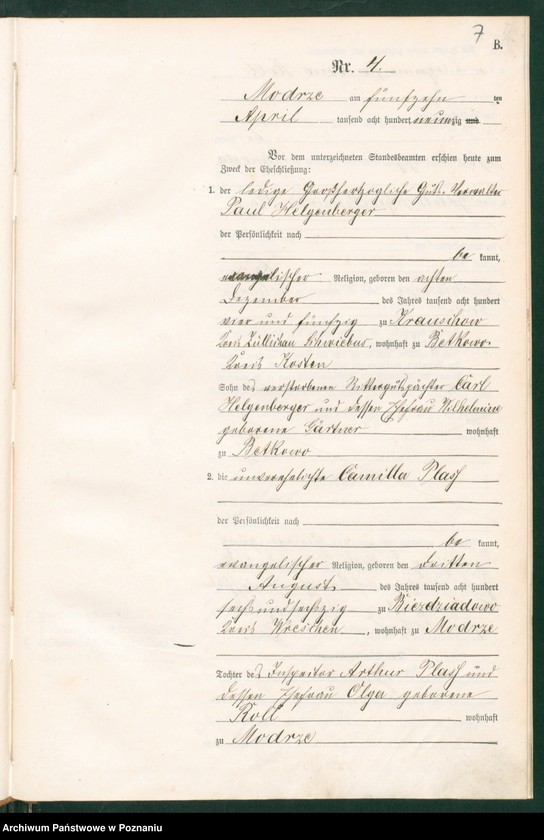 7
B.
Nr. 4.
Modrze am fünfzehn ten
April tausend acht hundert neunzig und
Vor dem unterzeichneten Standesbeamten erschien heute zum
Zweck der Eheschließung:
1. der ledige Großherzogliche Guts-Verwalter
Paul Helgenberger
der Persönlichkeit nach
be kannt,
evangelischer Religion, geboren den achten
Dezember des Jahres tausend acht hundert
vier und fünfzig zu Krauschow
Kreis Züllichau Schwiebus, wohnhaft zu Betkowo
Kreis Kosten
Sohn des verstorbenen Rittergutspächter Carl
Helgenberger und dessen Ehefrau Wilhelmine
geborene Gärtner wohnhaft
zu Betkowo
2. die unverehelichte Camilla Plass
der Persönlichkeit nach
be kannt,
evangelischer Religion, geboren den dritten
August des Jahres tausend acht hundert
sechsundsechszig zu Biezdziadowo
Kreis Wreschen, wohnhaft zu Modrze
Tochter des Inspector Arthur Plass und
dessen Ehefrau Olga geborene
Roll wohnhaft
zu Modrze
Archiwum Państwowe w Poznaniu